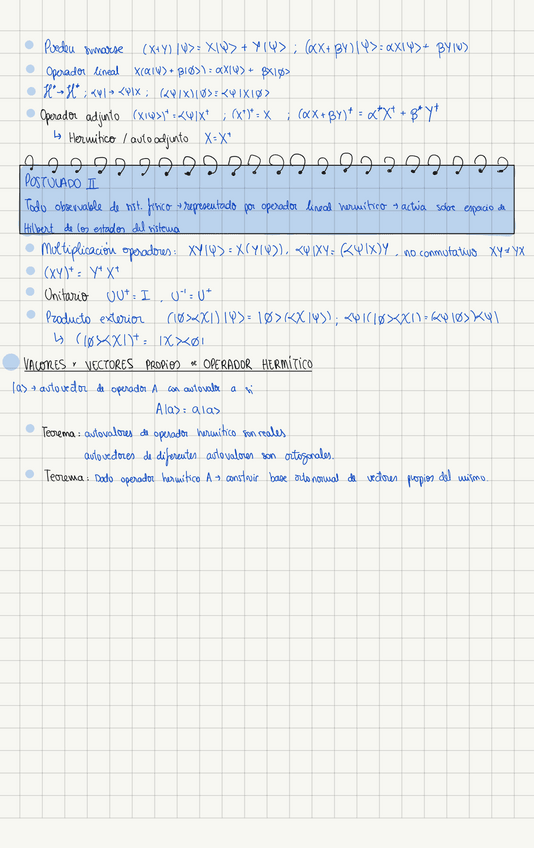 Pueden sumarse (X+Y)|ψ> = X|ψ> + Y|ψ> ; (αX+βY)|ψ> = αX|ψ> + βY|ψ>
Operador lineal X(α|ψ> + β|ø>) = αX|ψ> + βX|ø>
H* → H* ; <ψ| → <ψ|X ; (<ψ|X)|ø> = <ψ|X|ø>
Operador adjunto (X|ψ>)† = <ψ|X† ; (X†)† = X ; (αX + βY)† = α*X† + β*Y†
↳ Hermítico / autoadjunto X = X†
POSTULADO II
Todo observable de sist. físico → representado por operador lineal hermítico → actúa sobre espacio de
Hilbert de los estados del sistema
Multiplicación operadores: XY|ψ> = X(Y|ψ>), <ψ|XY = (<ψ|X)Y , no conmutativo XY ≠ YX
(XY)† = Y†X†
Unitario UU† = I , U⁻¹ = U†
Producto exterior (|ø><X|)|ψ> = |ø>(<X|ψ>) ; <ψ|(|ø><X|) = (<ψ|ø>)<ψ|
↳ (|ø><X|)† = |X><ø|
VALORES Y VECTORES PROPIOS DE OPERADOR HERMÍTICO
|a> → autovector de operador A con autovalor a si
A|a> = a|a>
Teorema: autovalores de operador hermítico son reales
autovectores de diferentes autovalores son ortogonales.
Teorema: Dado operador hermítico A → construir base ortonormal de vectores propios del mismo.